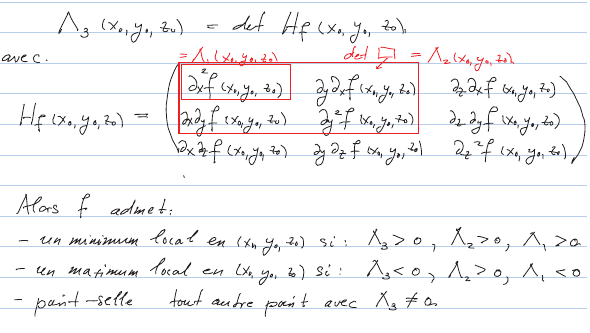 Λ₃ (x₀, y₀, z₀) = det Hf (x₀, y₀, z₀),
avec.
= Λ₁ (x₀, y₀, z₀) det □ = Λ₂ (x₀, y₀, z₀)
∂x²f (x₀, y₀, z₀) ∂y∂xf (x₀, y₀, z₀) ∂z∂xf (x₀, y₀, z₀)
Hf (x₀, y₀, z₀) = ∂x∂yf (x₀, y₀, z₀) ∂y²f (x₀, y₀, z₀) ∂z∂yf (x₀, y₀, z₀)
∂x∂zf (x₀, y₀, z₀) ∂y∂zf (x₀, y₀, z₀) ∂z²f (x₀, y₀, z₀)
Alors f admet:
- un minimum local en (x₀, y₀, z₀) si: Λ₃ > 0, Λ₂ > 0, Λ₁ > 0
- un maximum local en (x₀, y₀, z₀) si: Λ₃ < 0, Λ₂ > 0, Λ₁ < 0
- point-selle tout autre point avec Λ₃ ≠ 0.